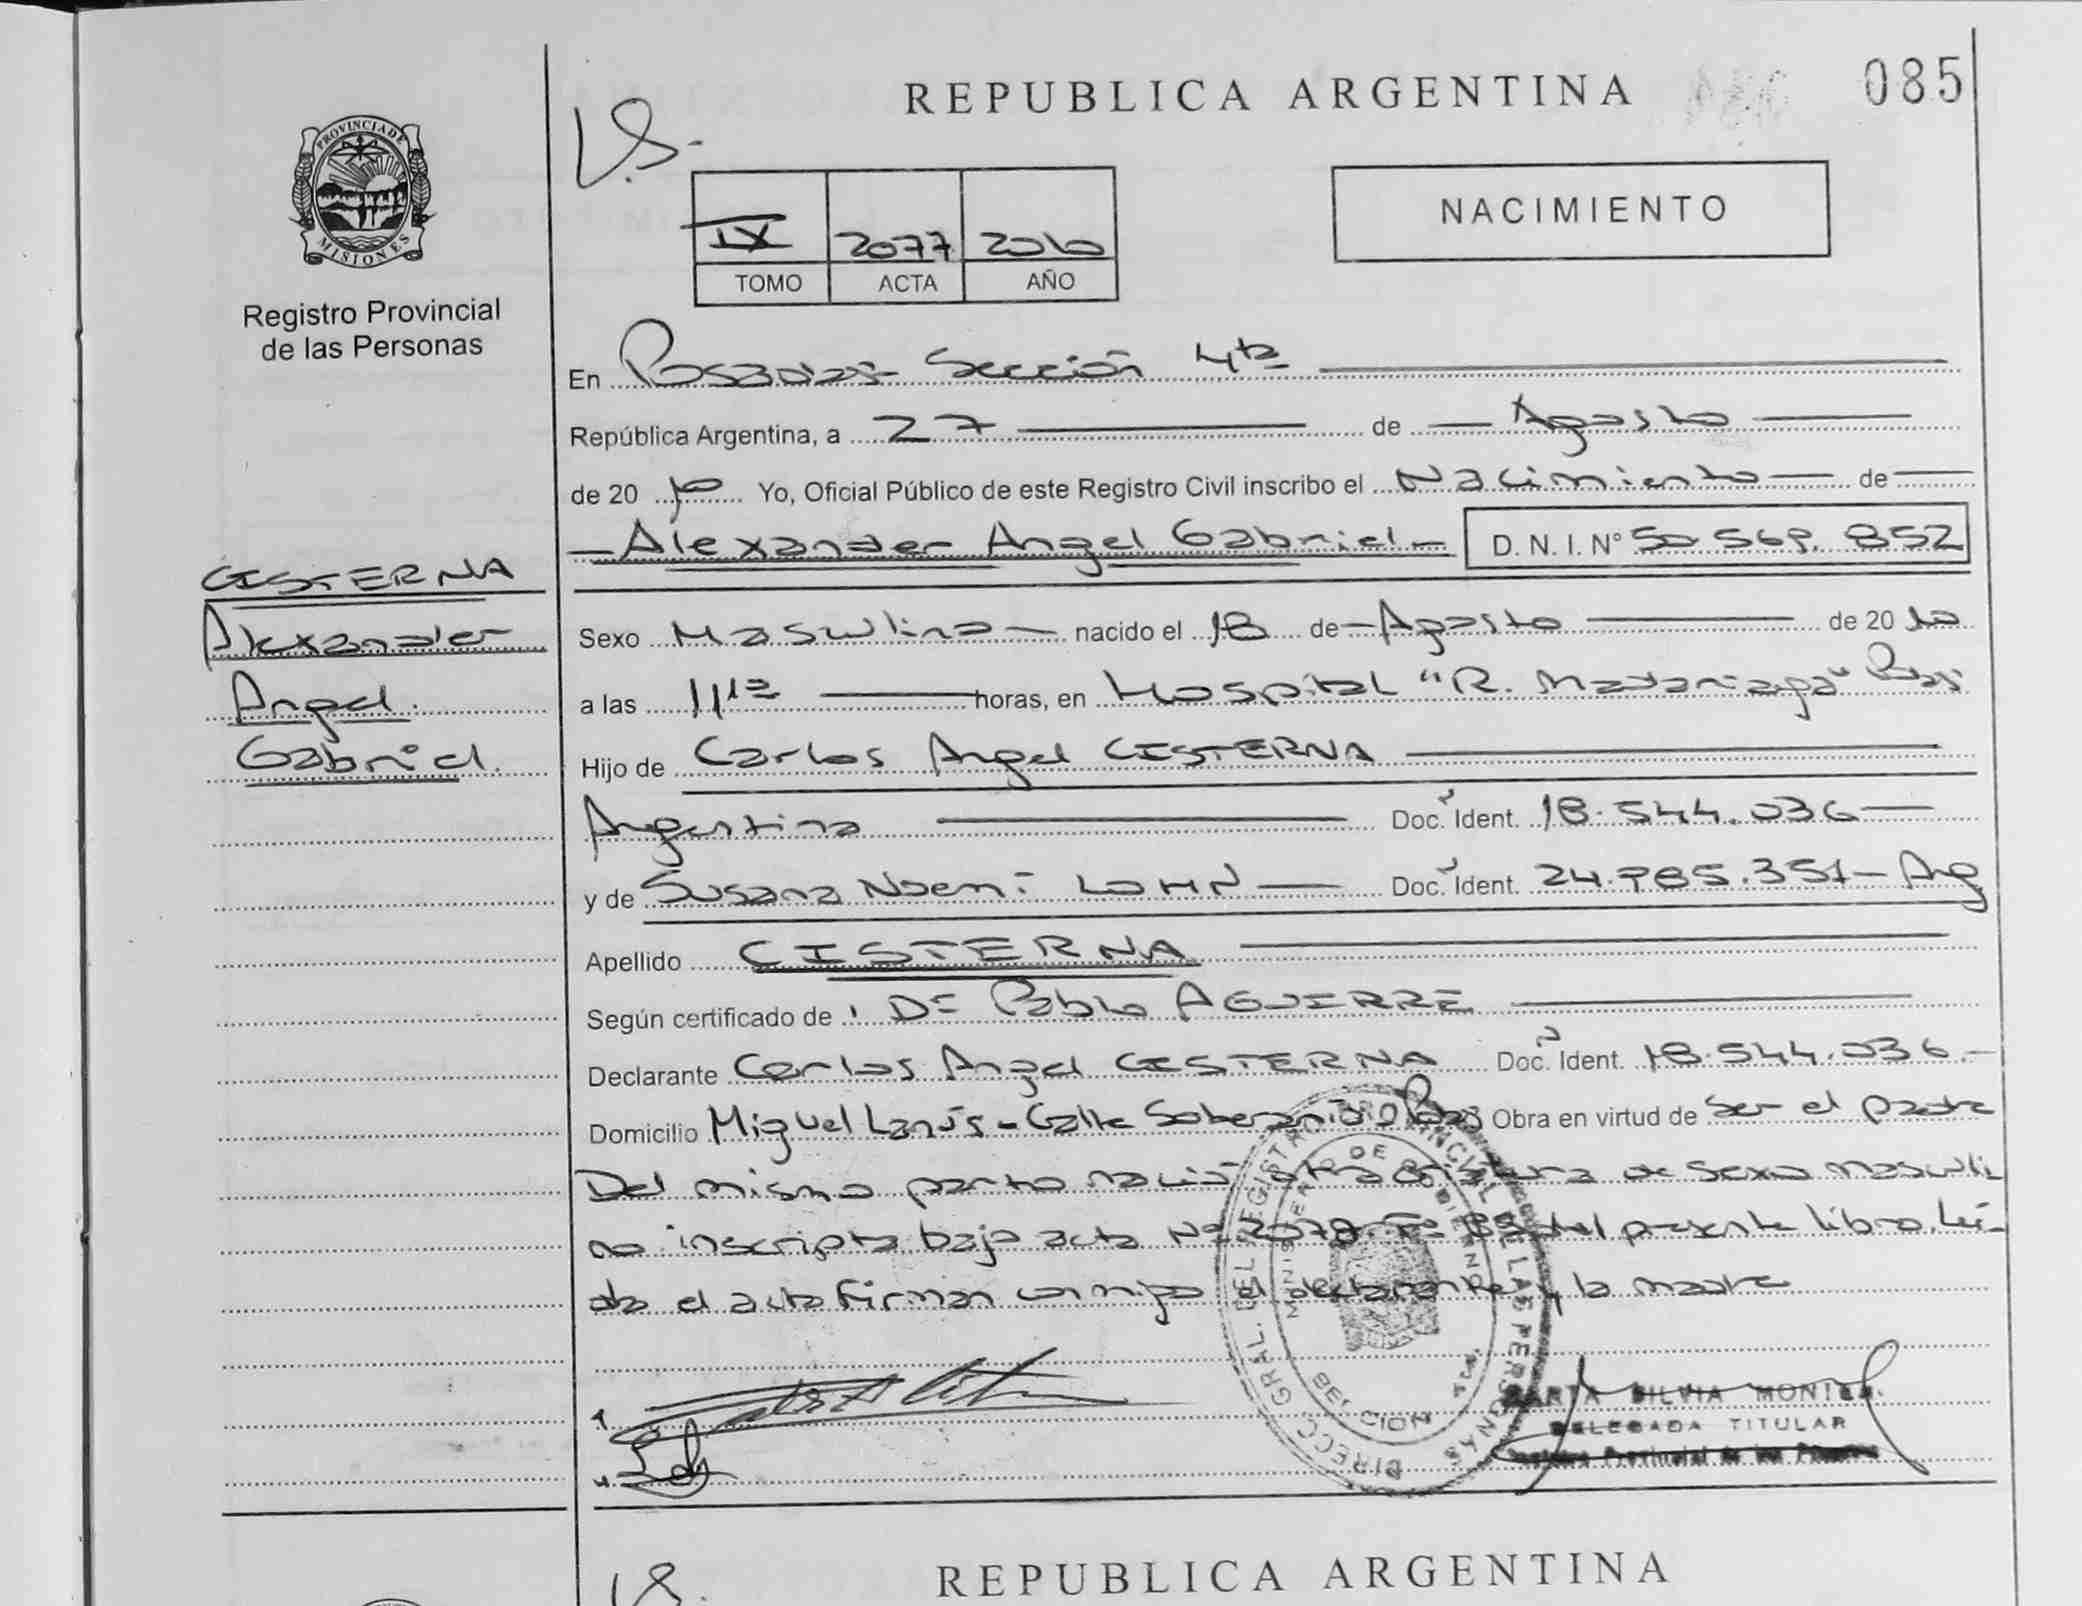 REPUBLICA ARGENTINA
085
PROVINCIA DE
MISIONES
Registro Provincial
de las Personas
NACIMIENTO
IX 2077 2010
TOMO ACTA AÑO
En Posadas Sección 4ta
República Argentina, a 27 de Agosto
de 20 10 Yo, Oficial Público de este Registro Civil inscribo el Nacimiento de
Alexander Angel Gabriel D. N. I. N° 50 569. 852
CISTERNA
Alexander
Angel
Gabriel.
Sexo Masculino nacido el 18 de Agosto de 20 10
a las horas, en Hospital "R. Madariaga" Pdas
Hijo de Carlos Angel CISTERNA
Argentina Doc. Ident. 18.544.036
y de Susana Noemí LOHN Doc. Ident. 24.985.351 - Arg
Apellido CISTERNA
Según certificado de Pablo AGUIRRE
Declarante Carlos Angel CISTERNA Doc. Ident. 18.544.036.-
Domicilio Miguel Lanús - Calle Soberanía Pdas Obra en virtud de ser el padre
Del mismo parto nació otra criatura de sexo masculi
no inscripta bajo acta N° 2078 F° 85 del presente libro. Leí-
da el acta firman conmigo el declarante y la madre
DIRECC. GRAL. DEL REGISTRO PROVINCIAL DE LAS PERSONAS
MINISTERIO DE GOBIERNO
SILVIA
DELEGADA TITULAR
Provincial de las Personas
REPUBLICA ARGENTINA